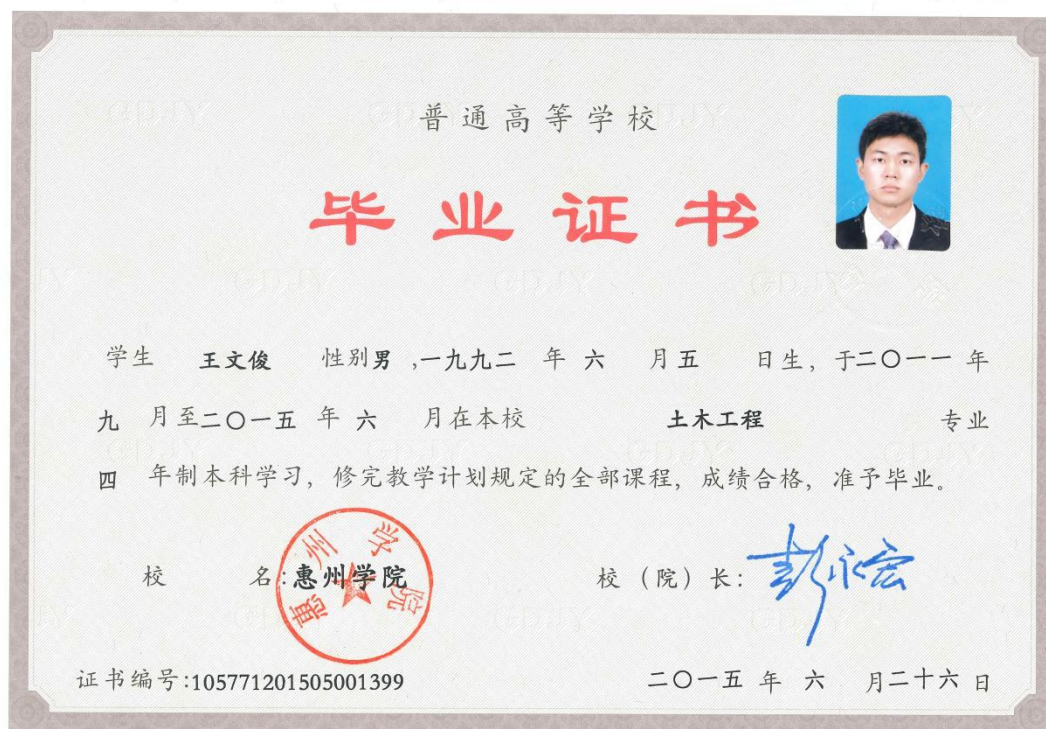 普通高等学校
毕业证书
学生 王文俊 性别男,一九九二 年 六 月五 日生，于二〇一一 年
九 月至二〇一五 年 六 月在本校 土木工程 专业
四 年制本科学习，修完教学计划规定的全部课程，成绩合格，准予毕业。
校 名:惠州学院
惠州学院
校（院）长: 彭永宏
证书编号:105771201505001399
二〇一五 年 六 月二十六 日
GDJY